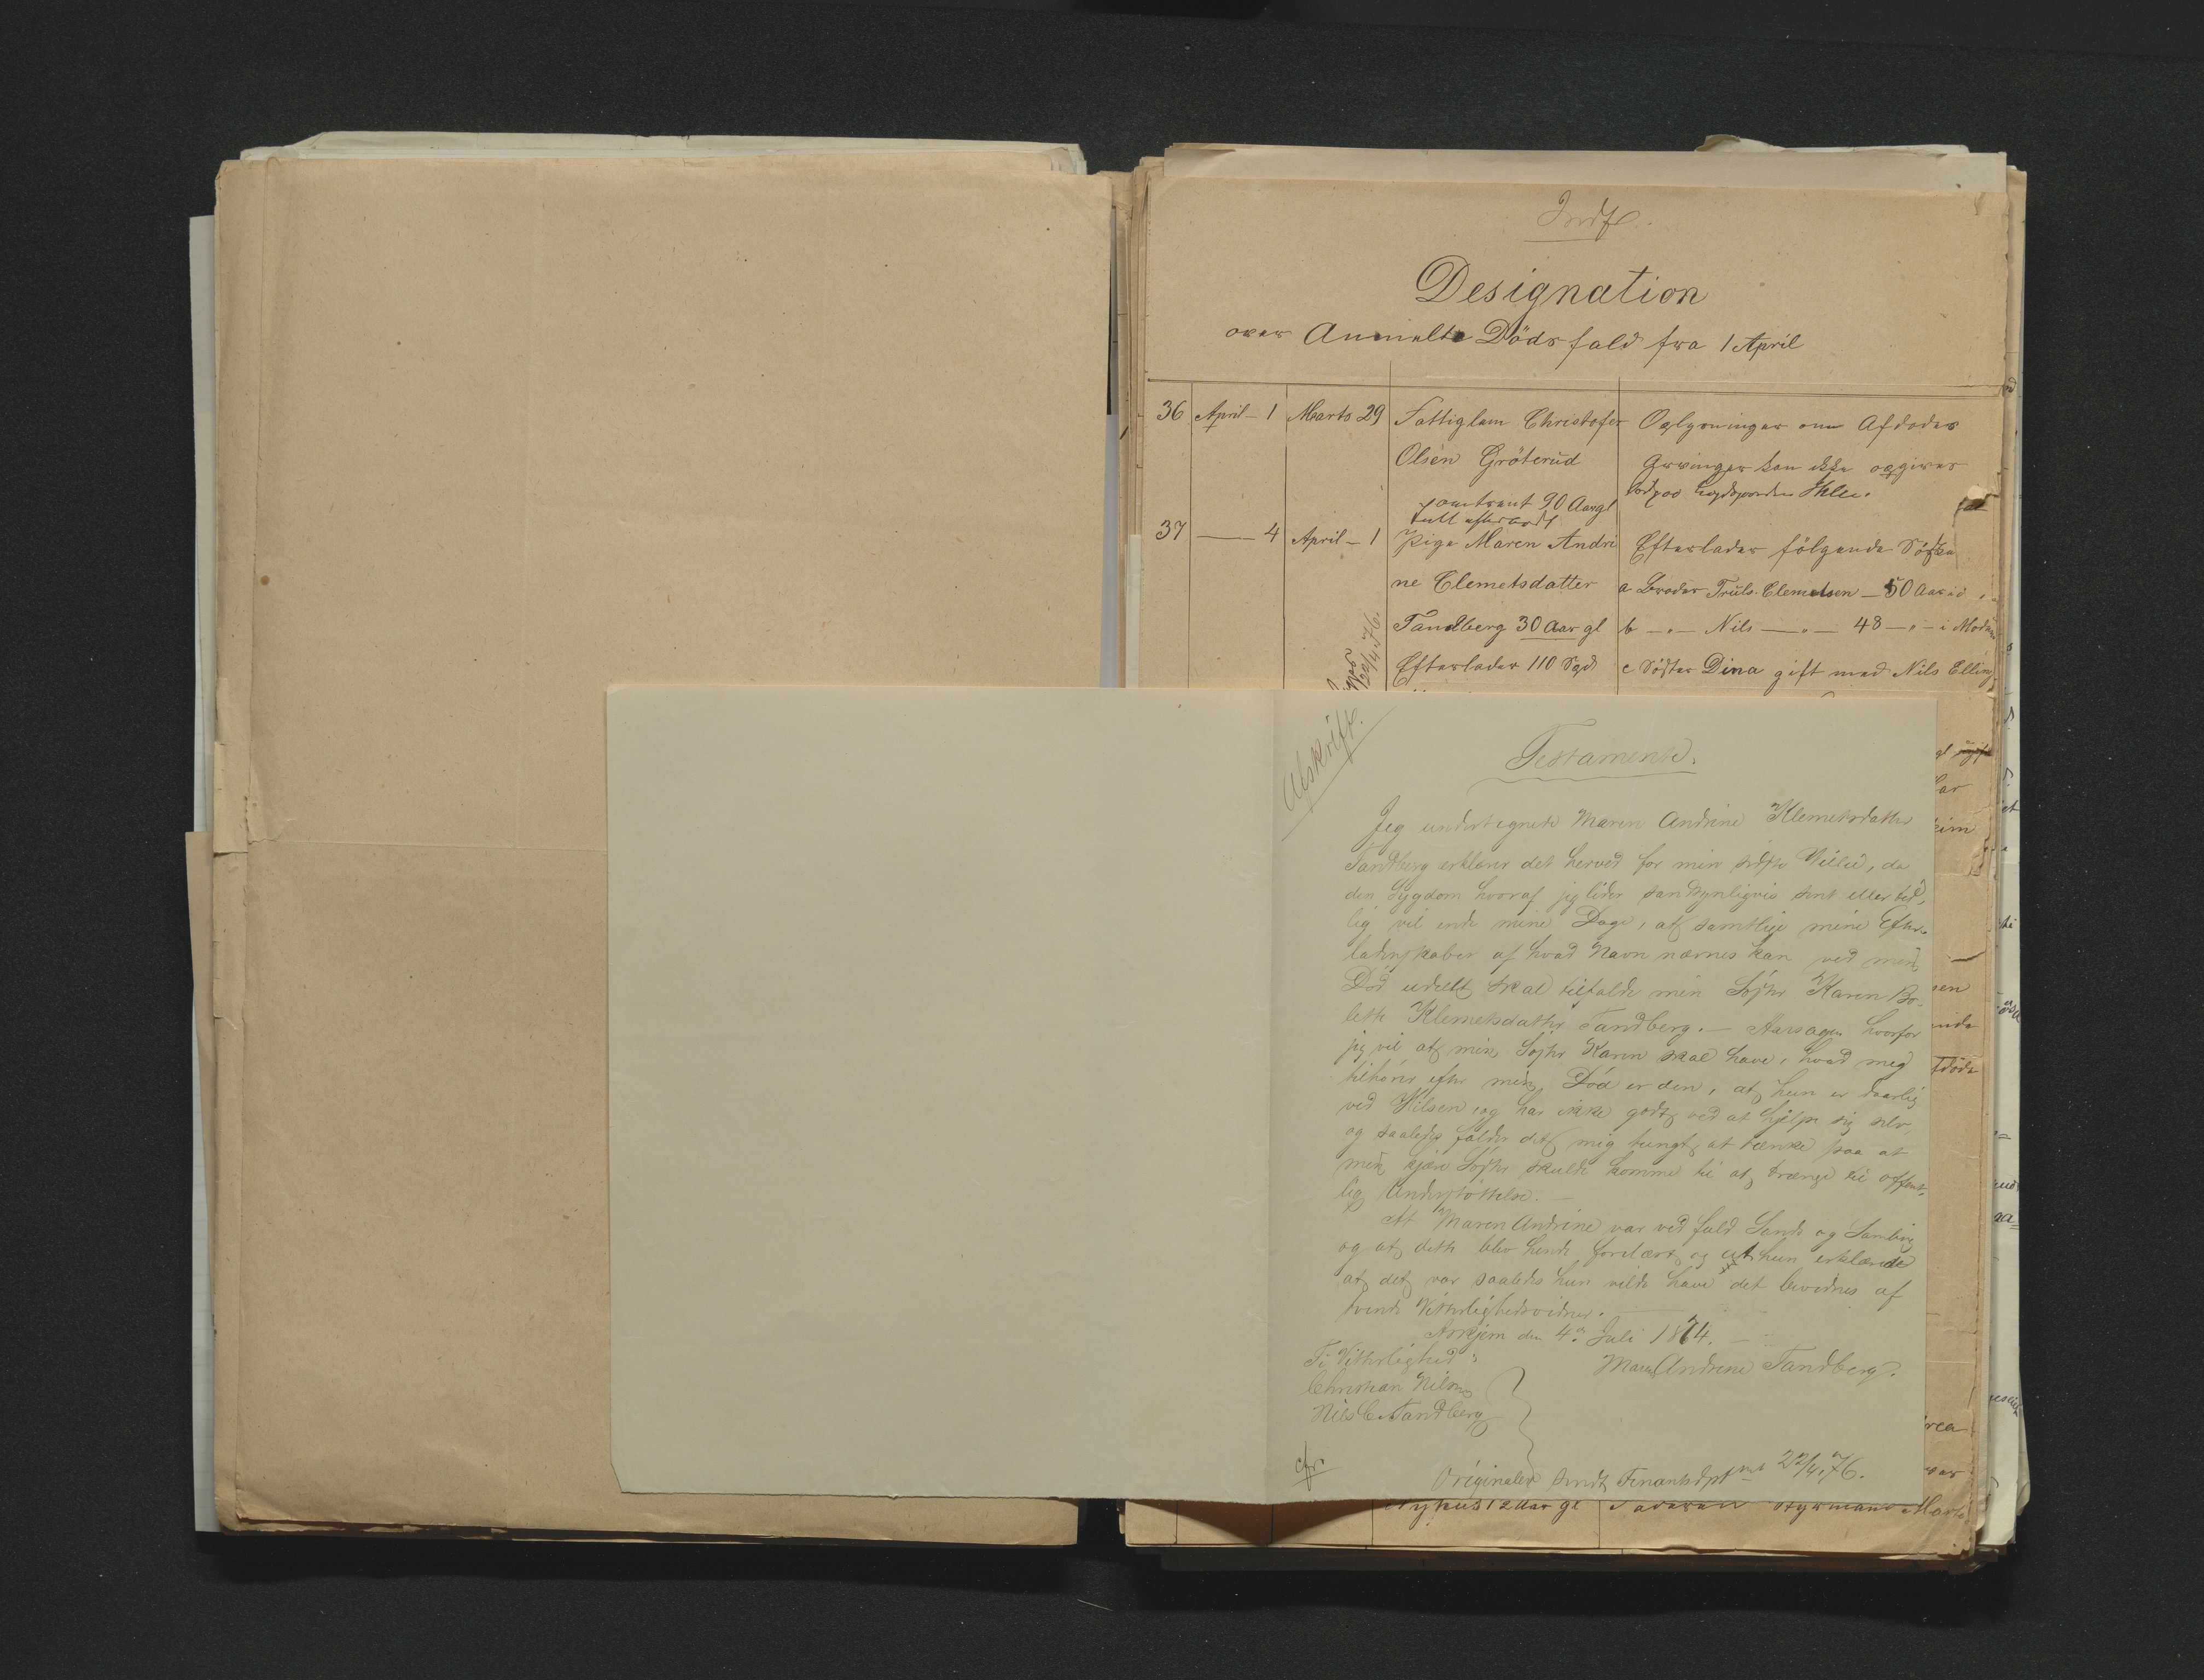 Indf.
Designation
over Anmeldte Dödsfald fra 1 April
36 April - 1 Marts 29 Fattiglem Christofer Oplysninger om Afdødes
Olsen Gröterud Arvinger kan ikke opgives
omtrent 90 Aar gl
37 — 4 April - 1 Pige Maren Andri Efterlader fölgende Södsken
ne Clemetsdatter a Broder Truls Clemetsen — 50 Aar
Tandberg 30 Aar gl b -"- Nils -"- 48 -"- i Modum
Efterlader 110 Spd c Söster Dina gift med Nils Elling
22/4 76.
Afskrift.
Testamente.
Jeg undertegnede Maren Andrine Klemetsdatter
Tandberg erklærer det herved for min sidste Villie, da
den Sygdom hvoraf jeg lider sandsynligvis sent eller tid,
lig vil ende mine Dage, at samtlige mine Efter-
ladenskaber af hvad Navn nævnes kan ved min
Död udelt skal tilfalde min Söster Karen Bo-
lette Klemetsdatter Tandberg. — Aarsagen hvorfor
jeg vil at min Söster Karen skal have, hvad meg
tilhörer efter min Död er den, at hun er daarlig
ved Hilsen og har ikke godt ved at hjelpe sig selv,
og saaledes falder det mig tungt at tænke paa at
min kjære Söster skulde komme til at trænge til offent,
lig Understöttelse. —
At Maren Andrine var ved fuld Sands og Samling
og at dette blev hende forelæst og at hun erklærede
at det var saaledes hun vilde have det bevidnes af
tvende Vitterlighedsvidner. —
Askjem den 4de Juli 1874. —
Til Vitterlighed: Maren Andrine Tandberg.
Christian Nilsen
Nils C. Tandberg
cfr.
Originalen sendt Finantsdptmt 22/4 76.
12 Aar gl Faderen Styrmand Marti